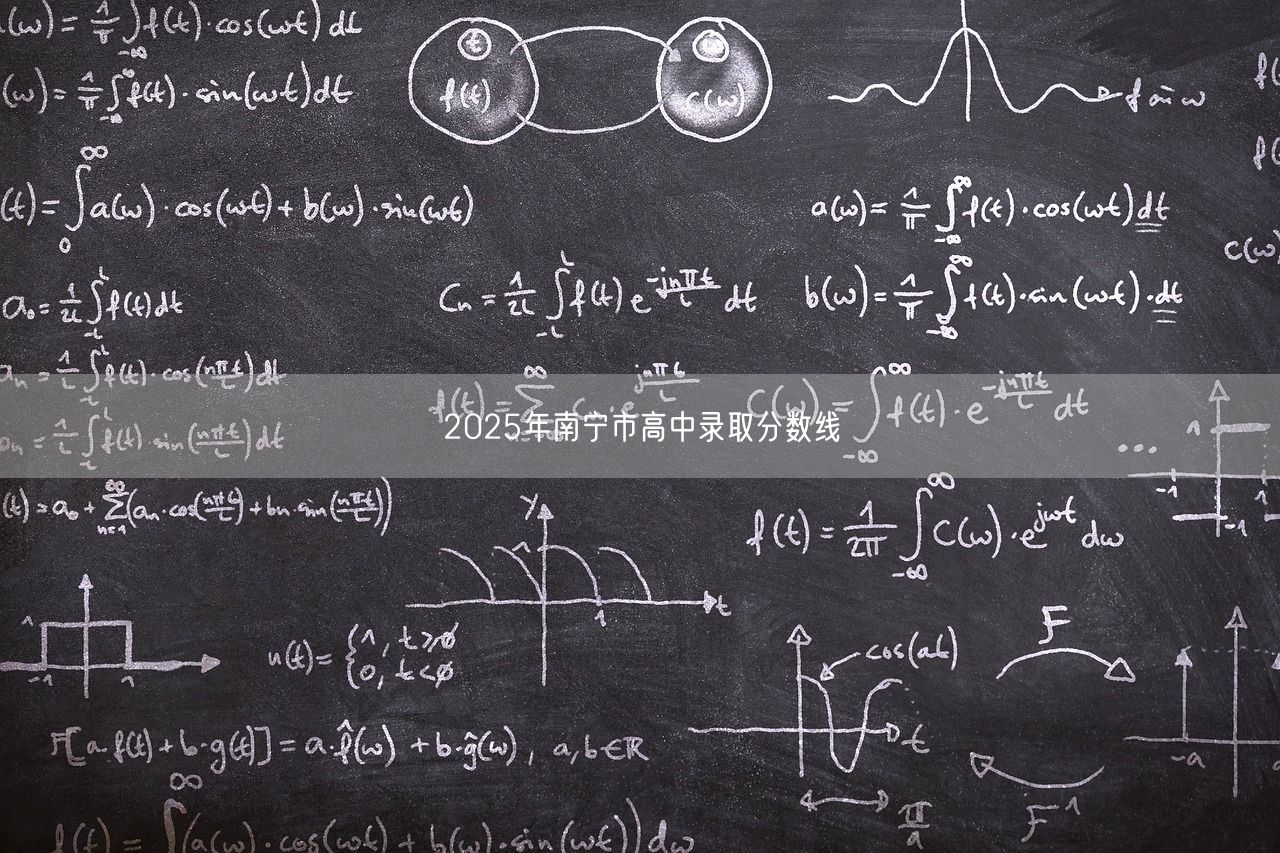 (ω) = 1/π ∫ f(t)·cos(ωt) dt
-∞
t
f(t)
c(ω)
(ω) = 1/π ∫ f(t)·sin(ωt) dt
-∞
(t) = ∫₀^∞ a(ω)·cos(ωt) + b(ω)·sin(ωt)
a(ω) = 1/π ∫_{-∞}^{∞} f(t)·cos(ωt) dt
c(ω)
a₀ = 1/2L ∫_{-L}^{L} f(t) dt
Cn = 1/2L ∫_{-L}^{L} f(t) e^{-jnπt/L} dt
b(ω) = 1/π ∫_{-∞}^{∞} f(t)·sin(ωt)·dt
an = 1/L ∫_{-L}^{L} f(t)·cos(nπt/L) dt
f(t) = Σ^{∞} Cn·e^{jnπt/L}
C(ω) = ∫_{-∞}^{∞} f(t)·e^{-jnπt/L} dt
2025年南宁市高中录取分数线
1/L ∫_{-L}^{L} f(t)·sin(nπt/L) dt
...
1
-1
1
-1
(t) = a₀ + Σ_{n=1}^{∞} (an·cos(nπt/L) + bn·sin(nπt/L))
f(t) = 1/2π ∫_{-∞}^{∞} C(ω)·e^{jωt} dω
y
1
t
1
1
-1
1
u(t) = {1, t≥0
0, t<0
cos(at)
t
π/a
F
F⁻¹
-a
F[a·f(t) + b·g(t)] = a·f̂(ω) + b·ĝ(ω), a,b∈ℝ
f(t) = ∫^{∞} (a(ω)·cos(ωt) + b(ω)·sin(ωt)) dω